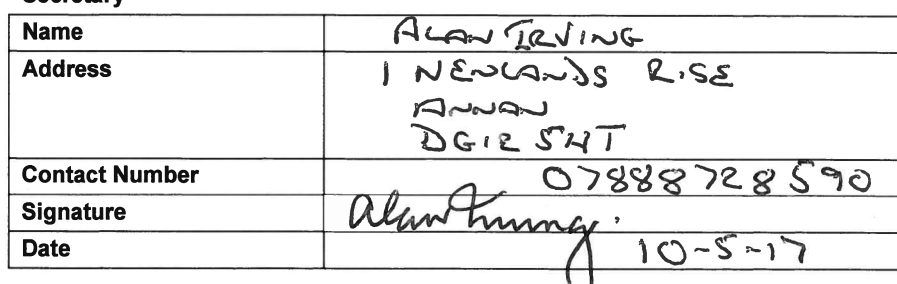 Secretary
Name ALAN IRVING
Address 1 NEWLANDS RISE
ANNAN
DG12 5HT
Contact Number 07888728590
Signature Alan Irving.
Date 10-5-17